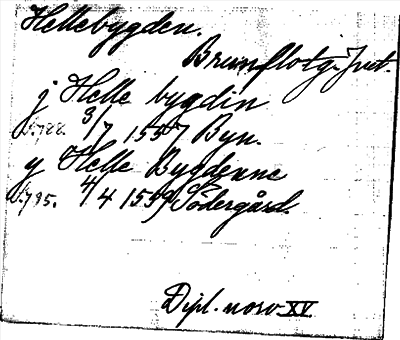 Hellebygden.
Brunflo tg. Jmt.
j Helle bygdin
s. 788. 3/7 1557 Byn.
y Helle Bygdenne
s. 795. 4/4 1559 Södergård.
Dipl. norv XV